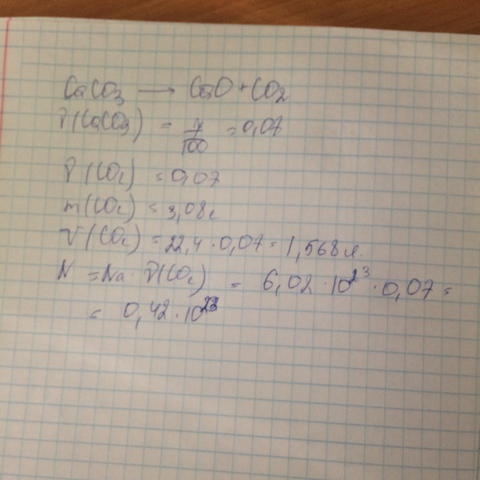 CaCO3 → CaO + CO2
ν(CaCO3) = 7/100 = 0,07
ν(CO2) = 0,07
m(CO2) = 3,08г
V(CO2) = 22,4 · 0,07 = 1,568л
N = Na · ν(CO2) = 6,02 · 10^23 · 0,07 =
= 0,42 · 10^23